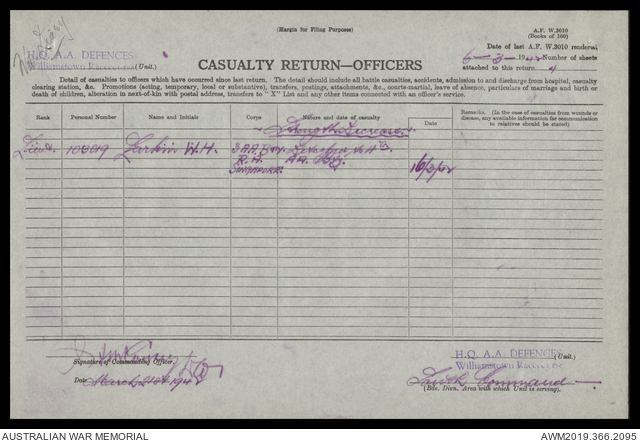 (Margin for Filing Purposes)
A.F. W.3010
(Books of 100)
H.Q. A.A. DEFENCES
Williamstown (Unit.)
Date of last A.F. W.3010 rendered,
6-3-1942 Number of sheets
attached to this return 4
CASUALTY RETURN—OFFICERS
Detail of casualties to officers which have occurred since last return. The detail should include all battle casualties, accidents, admission to and discharge from hospital, casualty
clearing station, &c. Promotions (acting, temporary, local or substantive), transfers, postings, attachments, &c., courts-martial, leave of absence, particulars of marriage and birth or
death of children, alteration in next-of-kin with postal address, transfers to "X" List and any other items connected with an officer's service.
Rank
Personal Number
Name and Initials
Corps
Nature and date of casualty
Date
Remarks. (In the case of casualties from wounds or
disease, any available information for communication
to relatives should be stated)
Strength Decrease
Lieut. Larkin W.H. 3 A.A. Bty.
R.A. 16/3/42
SINGAPORE
Signature of Commanding Officer.
Date March 21st 1942
H.Q. A.A. DEFENCES (Unit.)
Williamstown
South Command
(Bde. Divn. Area with which Unit is serving).
AUSTRALIAN WAR MEMORIAL
AWM2019.366.2095